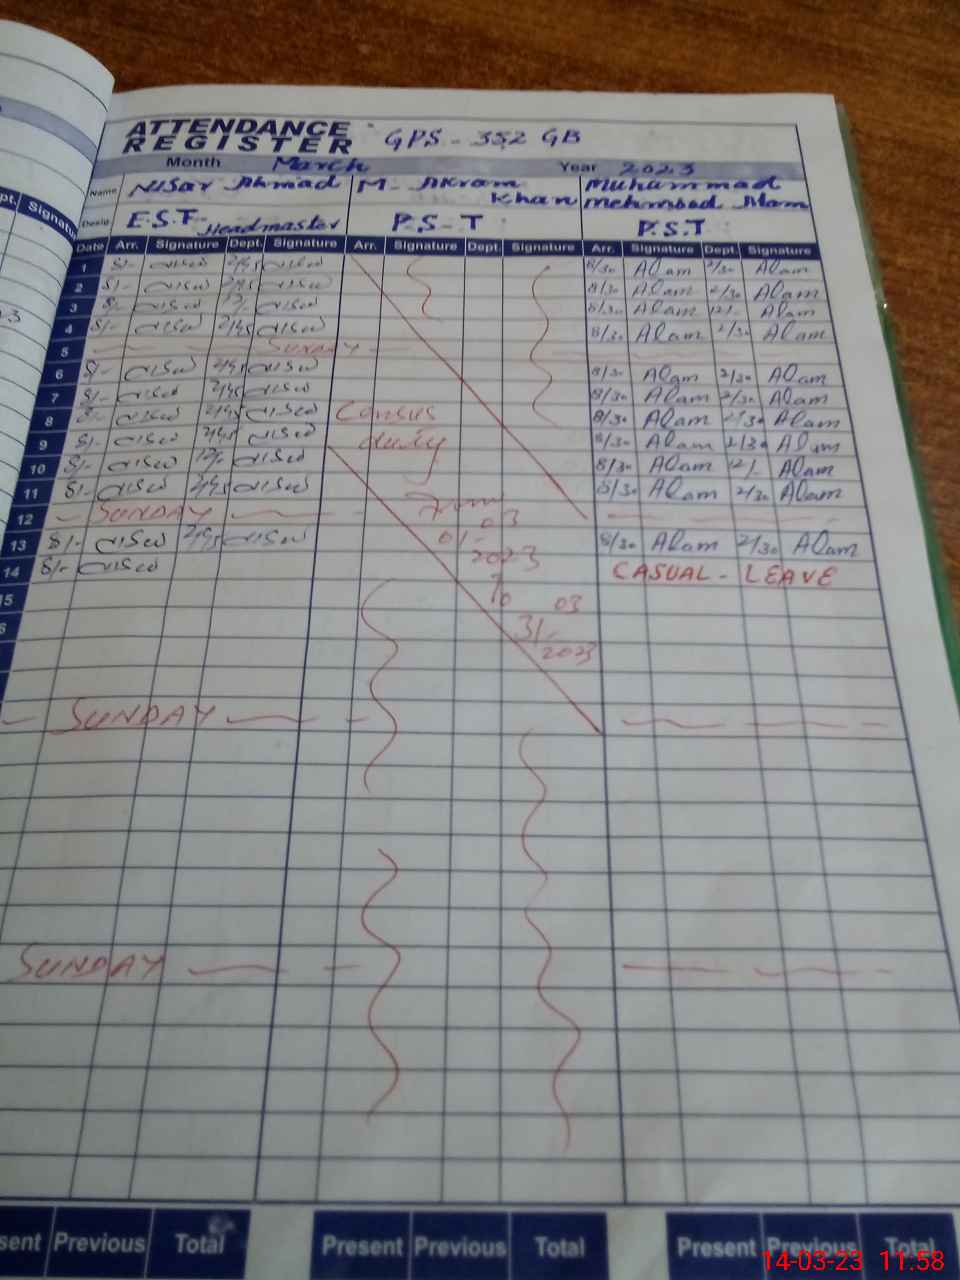 ATTENDANCE
REGISTER GPS - 352 GB
Month March Year 2023
Name Nisar Ahmad M. Akram Khan Muhammad Mehmood Alam
Desig E.S.T. Headmaster P.S.T P.S.T
Date Arr. Signature Dept. Signature Arr. Signature Dept. Signature Arr. Signature Dept. Signature
1 8/- 2/45 8/30 Alam 2/30 Alam
2 8/- 2/45 8/30 Alam 2/30 Alam
3 8/- 12/- 8/30 Alam 12/- Alam
4 8/- 2/45 8/30 Alam 2/30 Alam
5 SUNDAY
6 8/- 2/45 8/30 Alam 2/30 Alam
7 8/- 2/45 8/30 Alam 2/30 Alam
8 8/- 2/45 Census 8/30 Alam 2/30 Alam
9 8/- 2/45 duty 8/30 Alam 2/30 Alam
10 8/- 12/- 8/30 Alam 12/- Alam
11 8/- 2/45 8/30 Alam 2/30 Alam
12 SUNDAY From 03
13 8/- 2/45 01/- 2023 8/30 Alam 2/30 Alam
14 8/- To CASUAL - LEAVE
15 03
31/- 2023
SUNDAY
SUNDAY
Previous Total Present Previous Total Present Previous Total
14-03-23 11:58